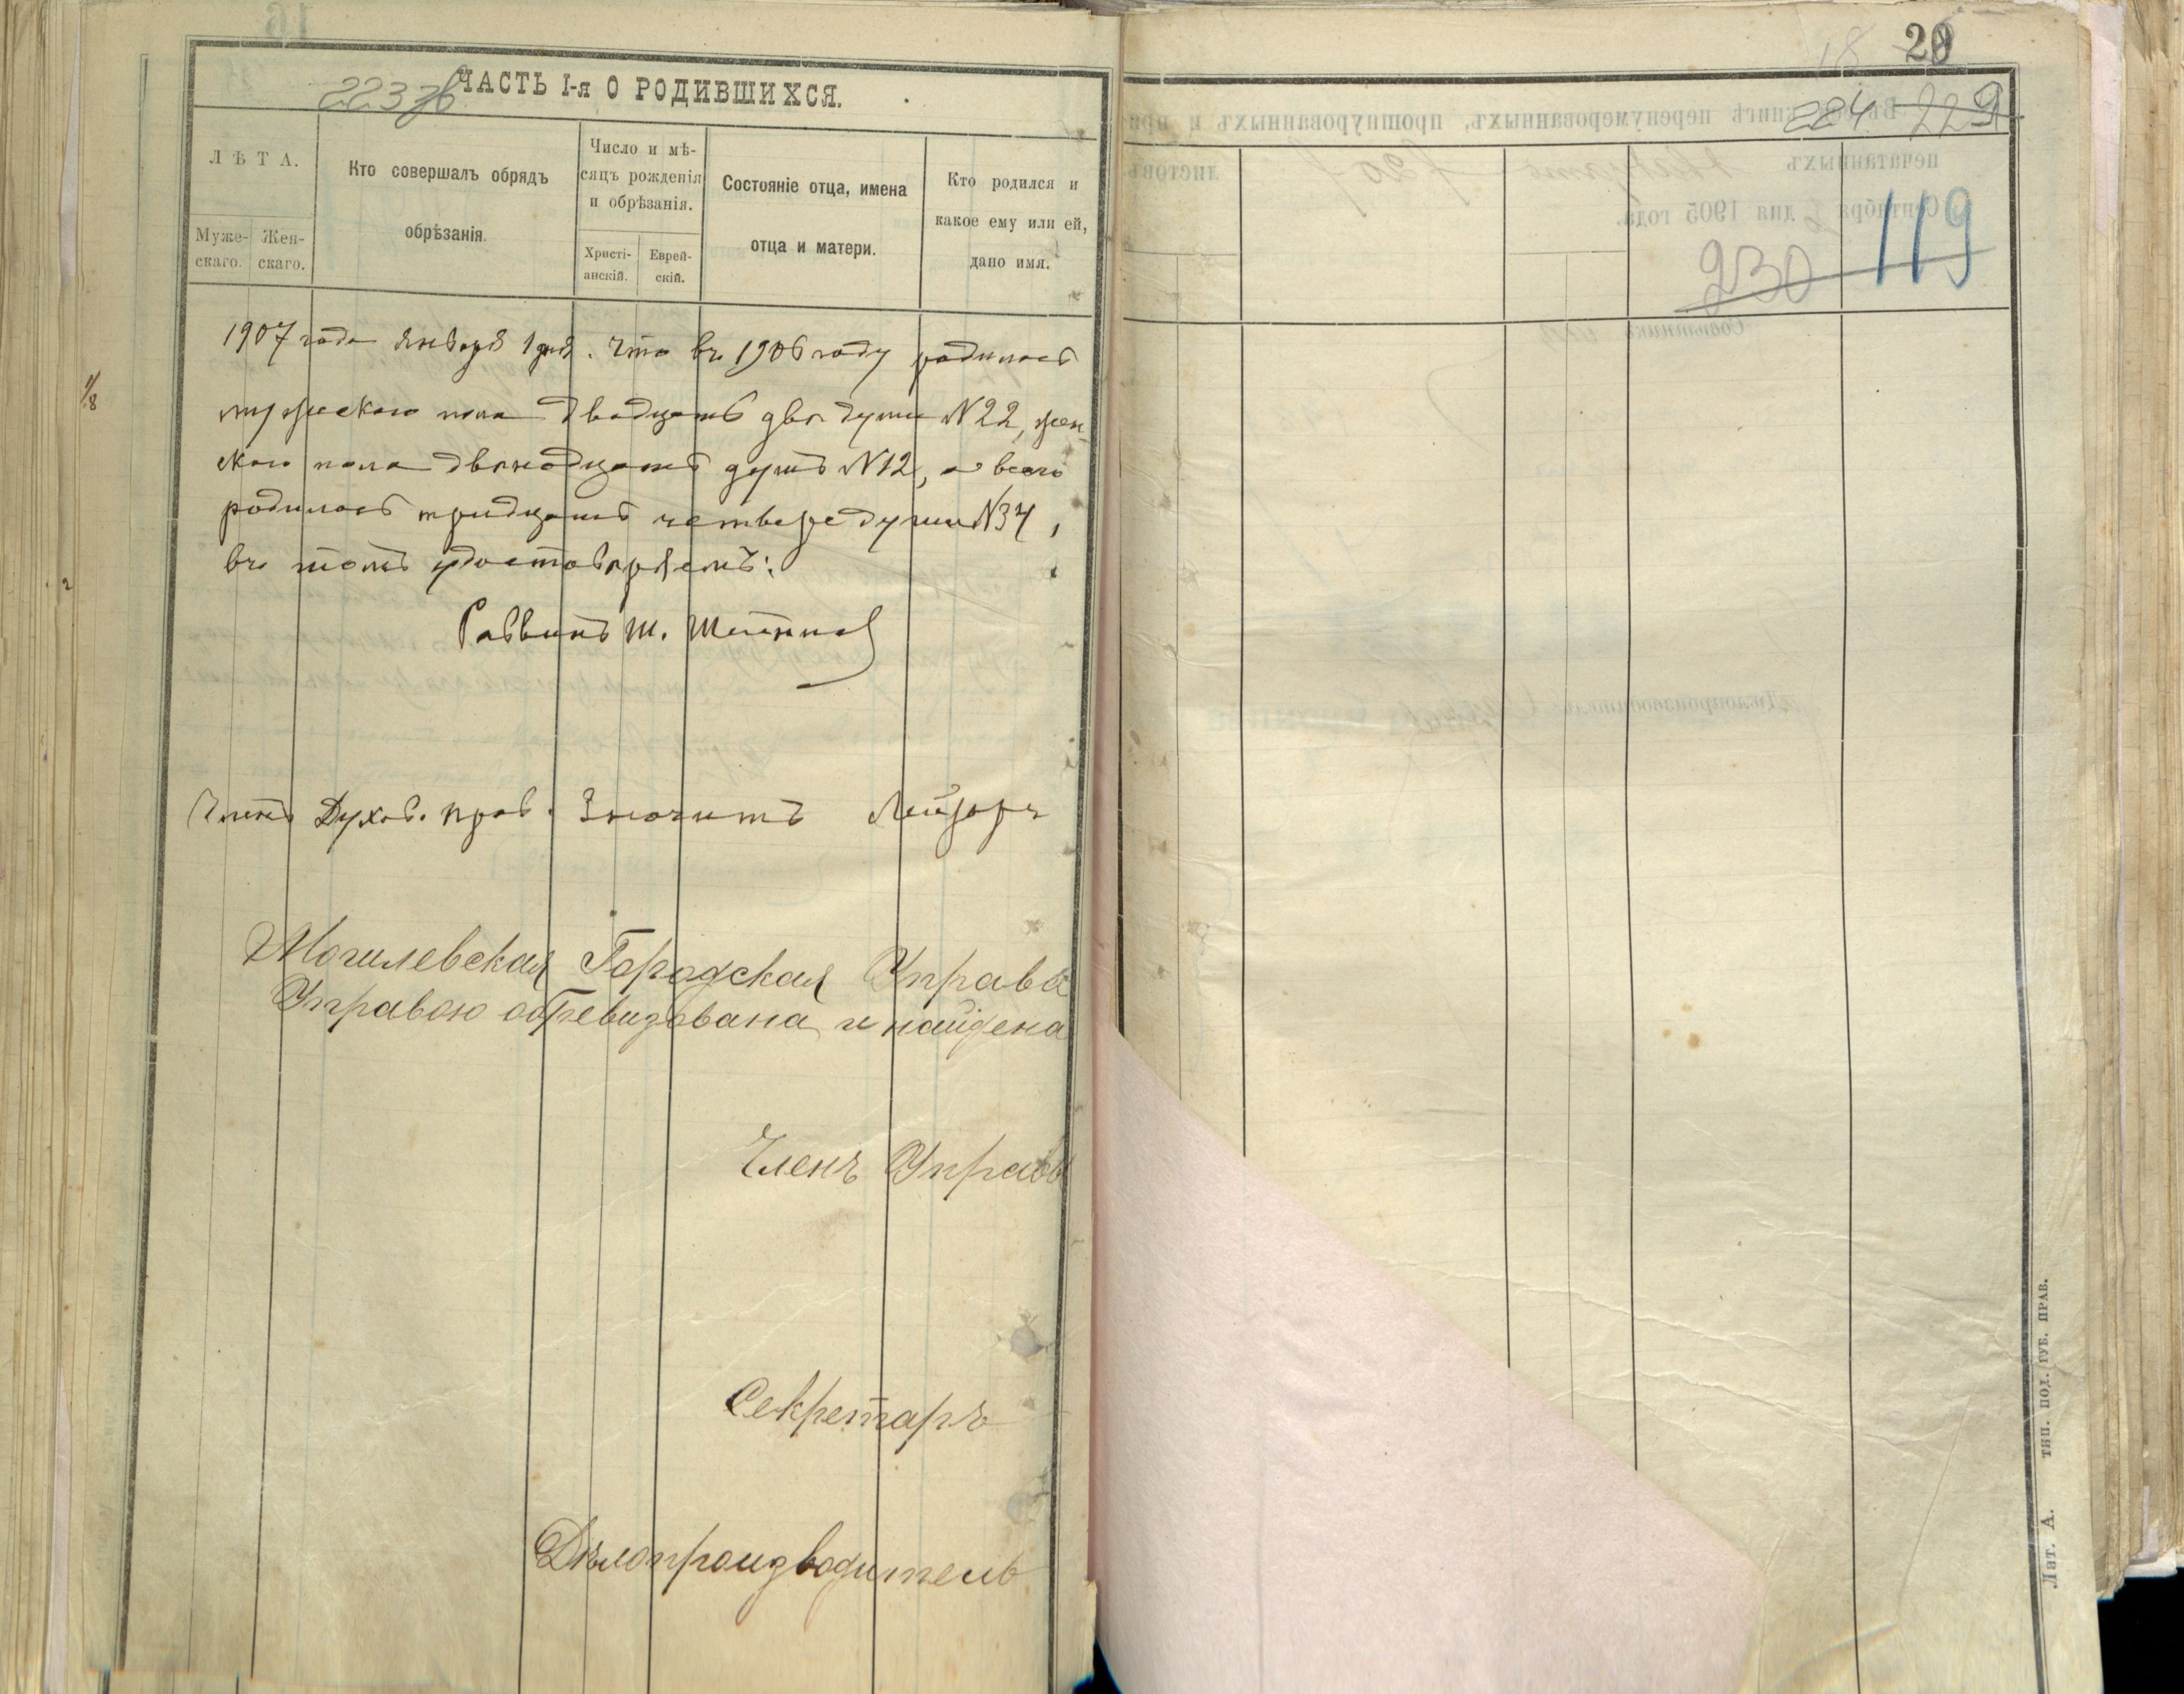 ЧАСТЬ I-я О РОДИВШИХСЯ.
Л Ѣ Т А.
Муже-
скаго.
Жен-
скаго.
Кто совершалъ обрядъ
обрѣзанія.
Число и мѣ-
сяцъ рожденія
и обрѣзанія.
Христі-
анскій.
Еврей-
скій.
Состояніе отца, имена
отца и матери.
Кто родился и
какое ему или ей,
дано имя.
1907 года Января 1 дня. Что въ 1906 году родилось
мужескаго пола двадцать две души №22, жен-
скаго пола двенадцать душъ №12, а всего
родилось тридцать четыре души №34,
въ томъ удостоверяемъ:
Раввинъ Ш.
Членъ Духов. прав. Лейзеръ
Могилевская Городская Управа
Управою обревизована и найдена
Членъ Управы
Секретарь
Дѣлопроизводитель
20
18
224
229
230
119
Въ книгѣ перенумерованныхъ, прошнурованныхъ и
печатанныхъ
листовъ
Сентября дня 1905 года.
Совѣтникъ
Дѣлопроизводитель
Лит. А. ТИП. ПОД. ГУБ. ПРАВ.